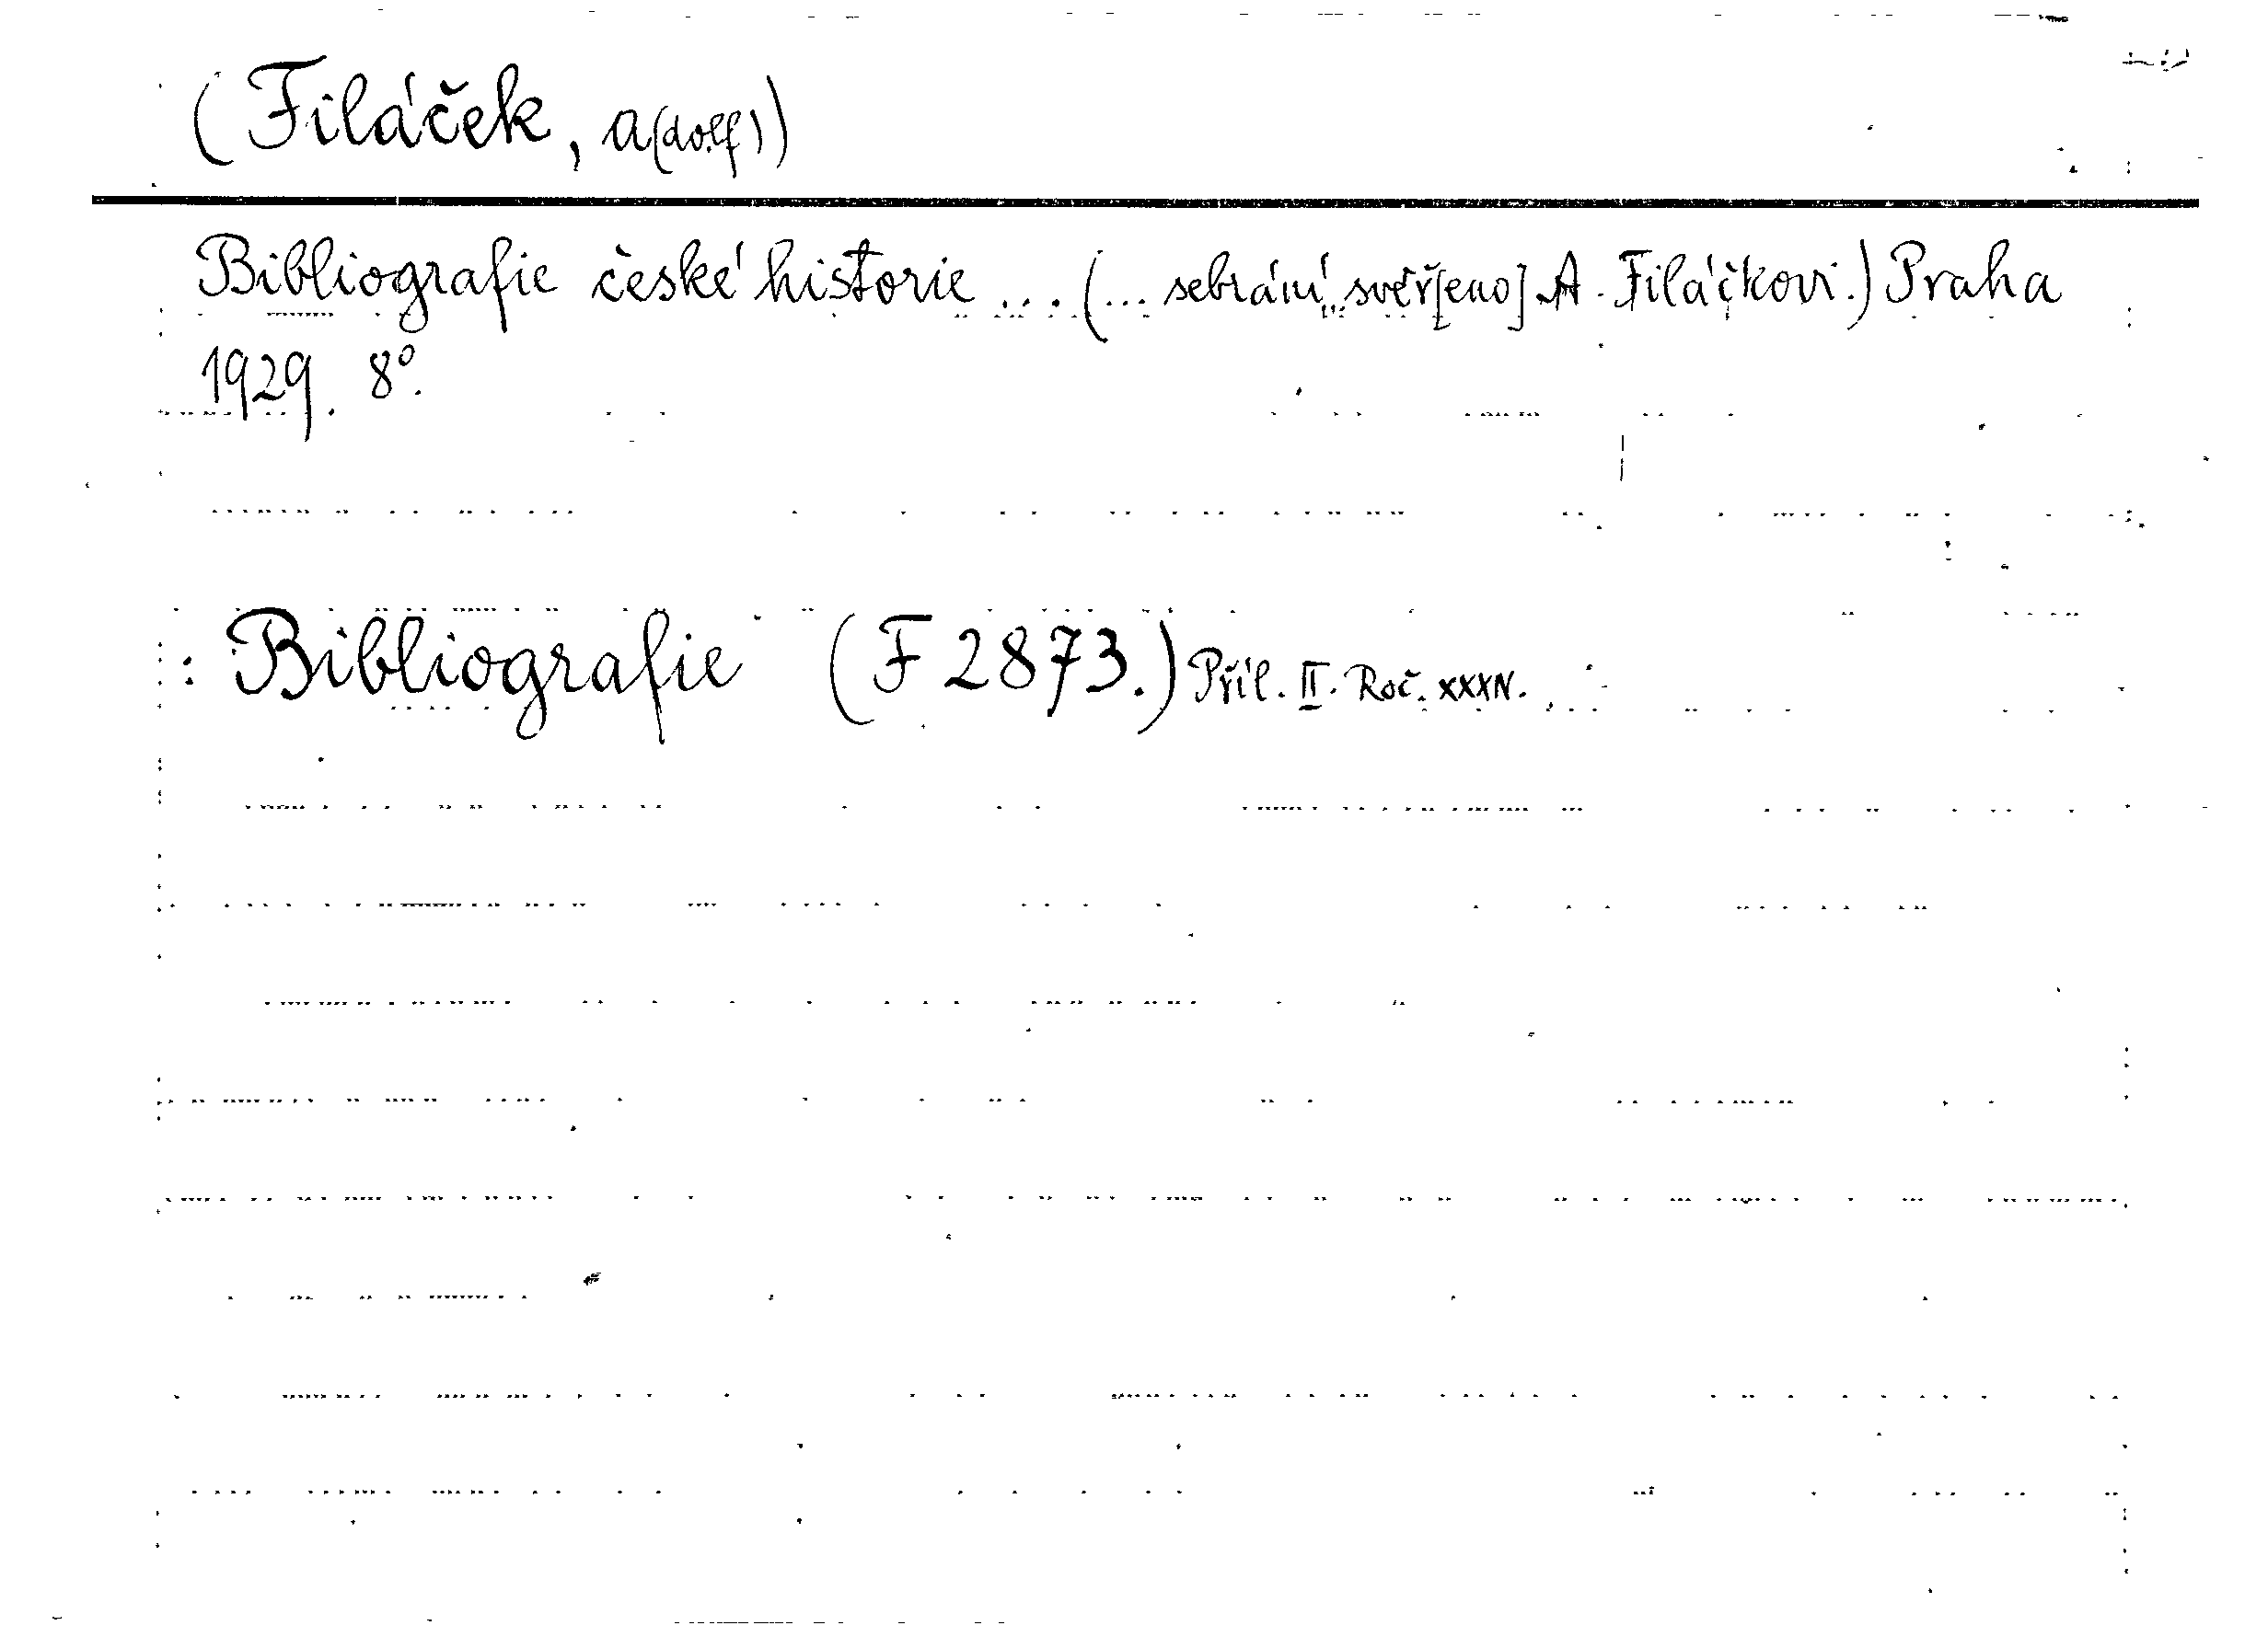 (Filáček, A(dolf))
Bibliografie české historie ... (... sebrání svěř[eno] A. Filáčkovi.) Praha
1929. 8°.
: Bibliografie (F 2873.) Příl. II. Roč. XXXIV.